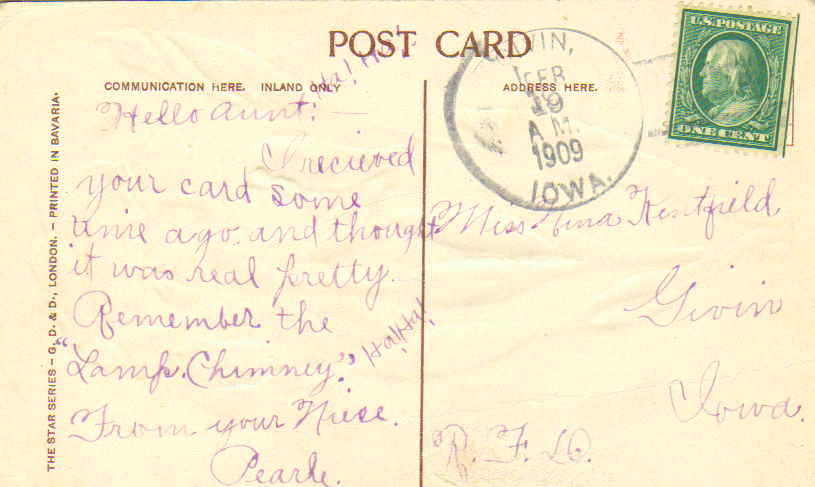 POST CARD
COMMUNICATION HERE. INLAND ONLY
ADDRESS HERE.
THE STAR SERIES – G. D. & D., LONDON. – PRINTED IN BAVARIA.
Ha! Ha!
Hello Aunt: —
I recieved
your card some
time ago. and thought
it was real pretty.
Remember the
"Lamp. Chimney."
Ha! Ha!
From your Niese.
Pearle.
GIVIN,
FEB
19
A M.
1909
IOWA.
U.S. POSTAGE
ONE CENT
Miss Nina Kentfield
Givin
Iowa.
R. F. D.